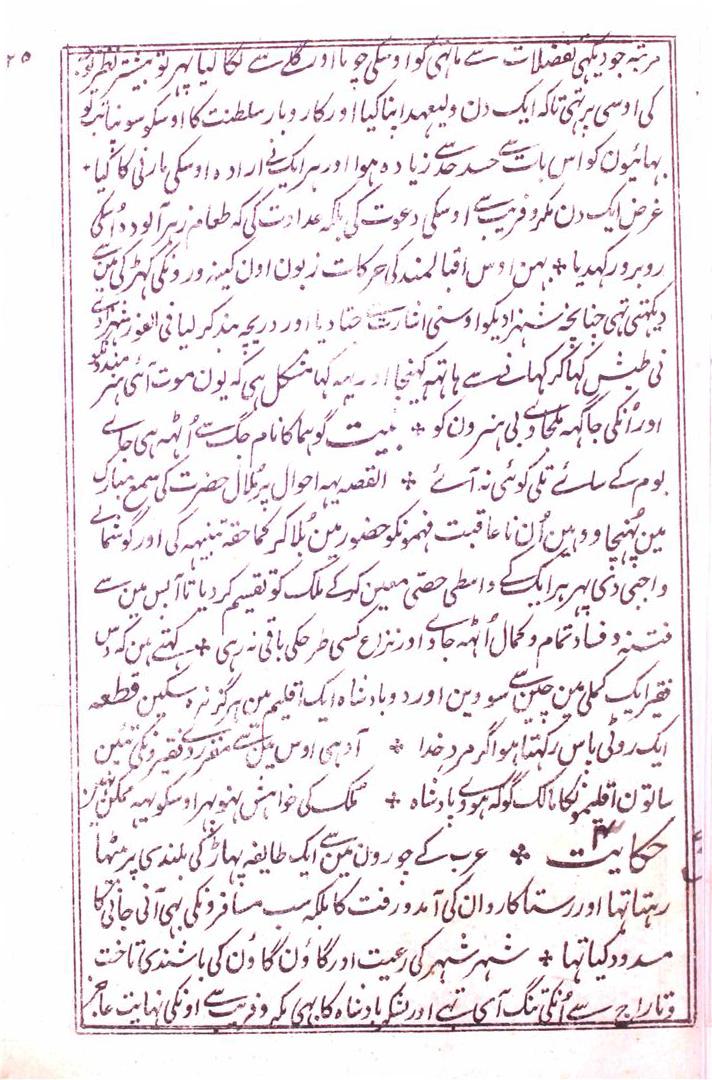 ۲۵
مرتبہ جو دیکہی تفضلات سے ماتہی کو اوسکی چوما اور گلے سے لگا لیا پہر تو بیشتر نظر توجہ
کی اوسی پر تہی تاکہ ایک دن ولیعہد اپنا کیا اور کاروبار سلطنت کا اوسکو سونپا تب تو
بہائیون کو اس بات سے حسد حد سے زیادہ ہوا اور ہر ایک نے ارادہ اوسکی مارنی کا کیا
غرض ایک دن مکر و فریب سے اوسکی دعوت کی بلکہ عداوت کی کہ طعام زہر آلودہ اُسکی
روبرو رکہدیا ٭ بہن اوس اقبالمند کی حرکات زبون اون کینہ ورونکی کہڑکی مین سے
دیکہتی تہی چنانچہ شہزادیکو اوسنی اشارت سے جتا دیا اور دریچہ بند کر لیا فی الفور شہزادے
نی طیش کہا کر کہانے سے ہاتہہ کہینچا اور یہہ کہا مشکل ہی کہ یون موت آئی ہنرمندونکو
اور اُنکی جاگہہ ملجاوے بی ہنرون کو ٭ بیت گو ہما کا نام جگ سے اُٹہہ ہی جاے
بوم کے سائے تلی کوئی نہ آئے ٭ القصہ یہہ احوال پُر ملال حضرت کی سمع مبارک
مین پُہنچا ووہین اُن ناعاقبت فہمونکو حضور مین بُلا کر کماحقہ تنبیہہ کی اور گوشمالے
واجبی دی پہر ہر ایک کے واسطی حصی معین کر کے ملک کو تقسیم کر دیا تا آپس مین سے
فتنہ و فساد تمام و کمال اُٹہہ جاوے اور نزاع کسی طرحکی باقی نہ رہی ٭ کہتے ہین کہ دس
فقیر ایک کملی مین چین سے سووین اور دو بادشاہ ایک اقلیم مین ہرگز نرہ سکین قطعہ
ایک روٹی پاس رکہتا ہو اگر مرد خدا ٭ آدہی اوس مین سے مقرر دے فقیرونکی تئین
ساتون اقلیمونکا مالک گو کہ ہووے بادشاہ ٭ ملک کی خواہش نہو پہر اوسکو یہہ ممکن نہین
حکایت ۴ ٭ عرب کے چورون مین سے ایک طایفہ پہاڑ کی بلندی پر بیٹہا
رہتا تہا اور رستا کاروان کی آمد و رفت کا بلکہ سب مسافرونکی بہی آنی جانی کا
مسدود کیا تہا ٭ شہر شہر کی رعیت اور گاؤن گاؤن کی باشندی تاخت
و تاراج سے اُنکی تنگ آئی تہے اور لشکر بادشاہ کا بہی مکر و فریب سے اونکی نہایت عاجز